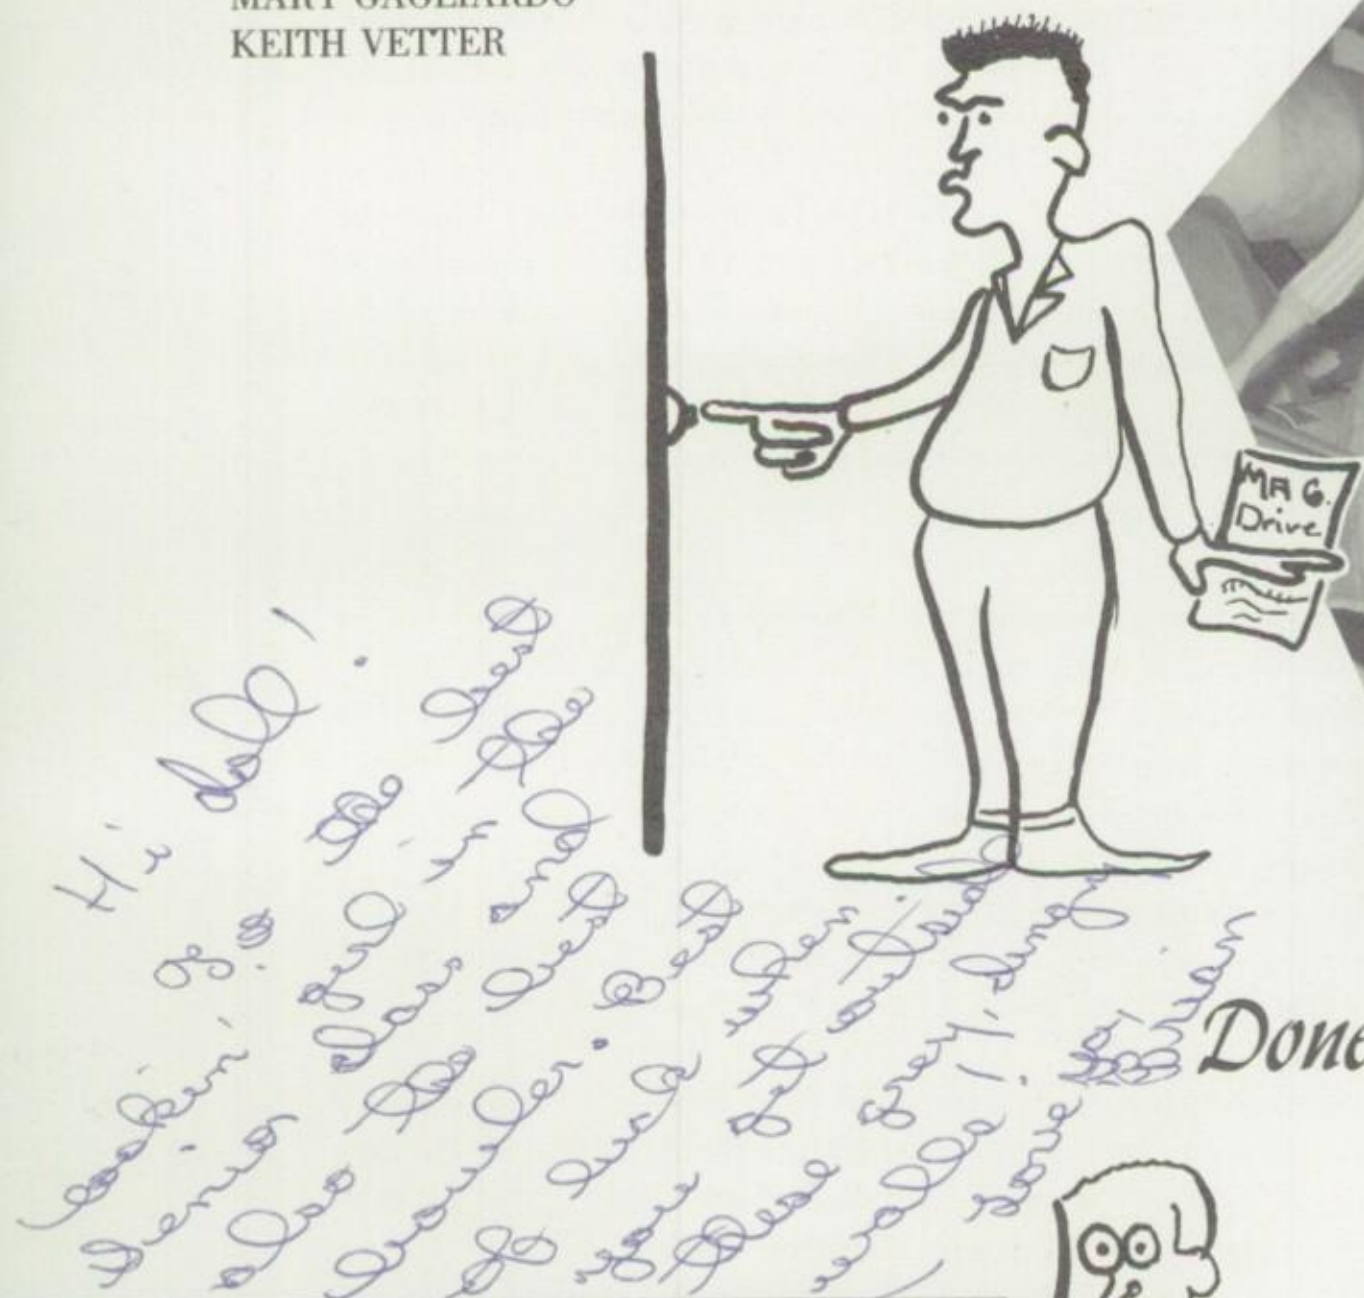 MARY GAGLIARDO
KEITH VETTER
MAG.
Drive
Hi doll!
the best
lookin' girl in the
Senior class and
also the best
bowler. Best
of luck when
you get outside
these grey, dingy
walls!!
Love ya,
Brian
Done